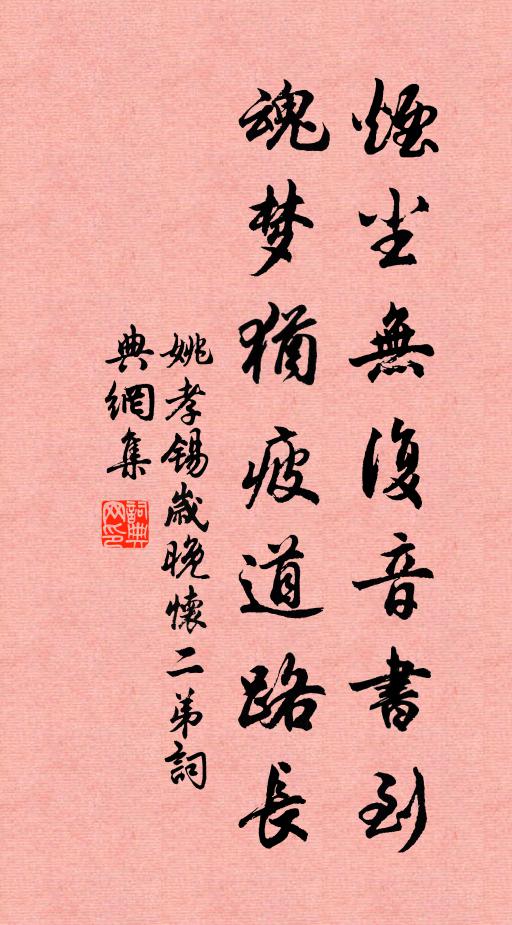 煙尘無復音書到
魂梦猶疲道路長
姚孝锡歲晚懷二弟詞
典網集
詞典网印